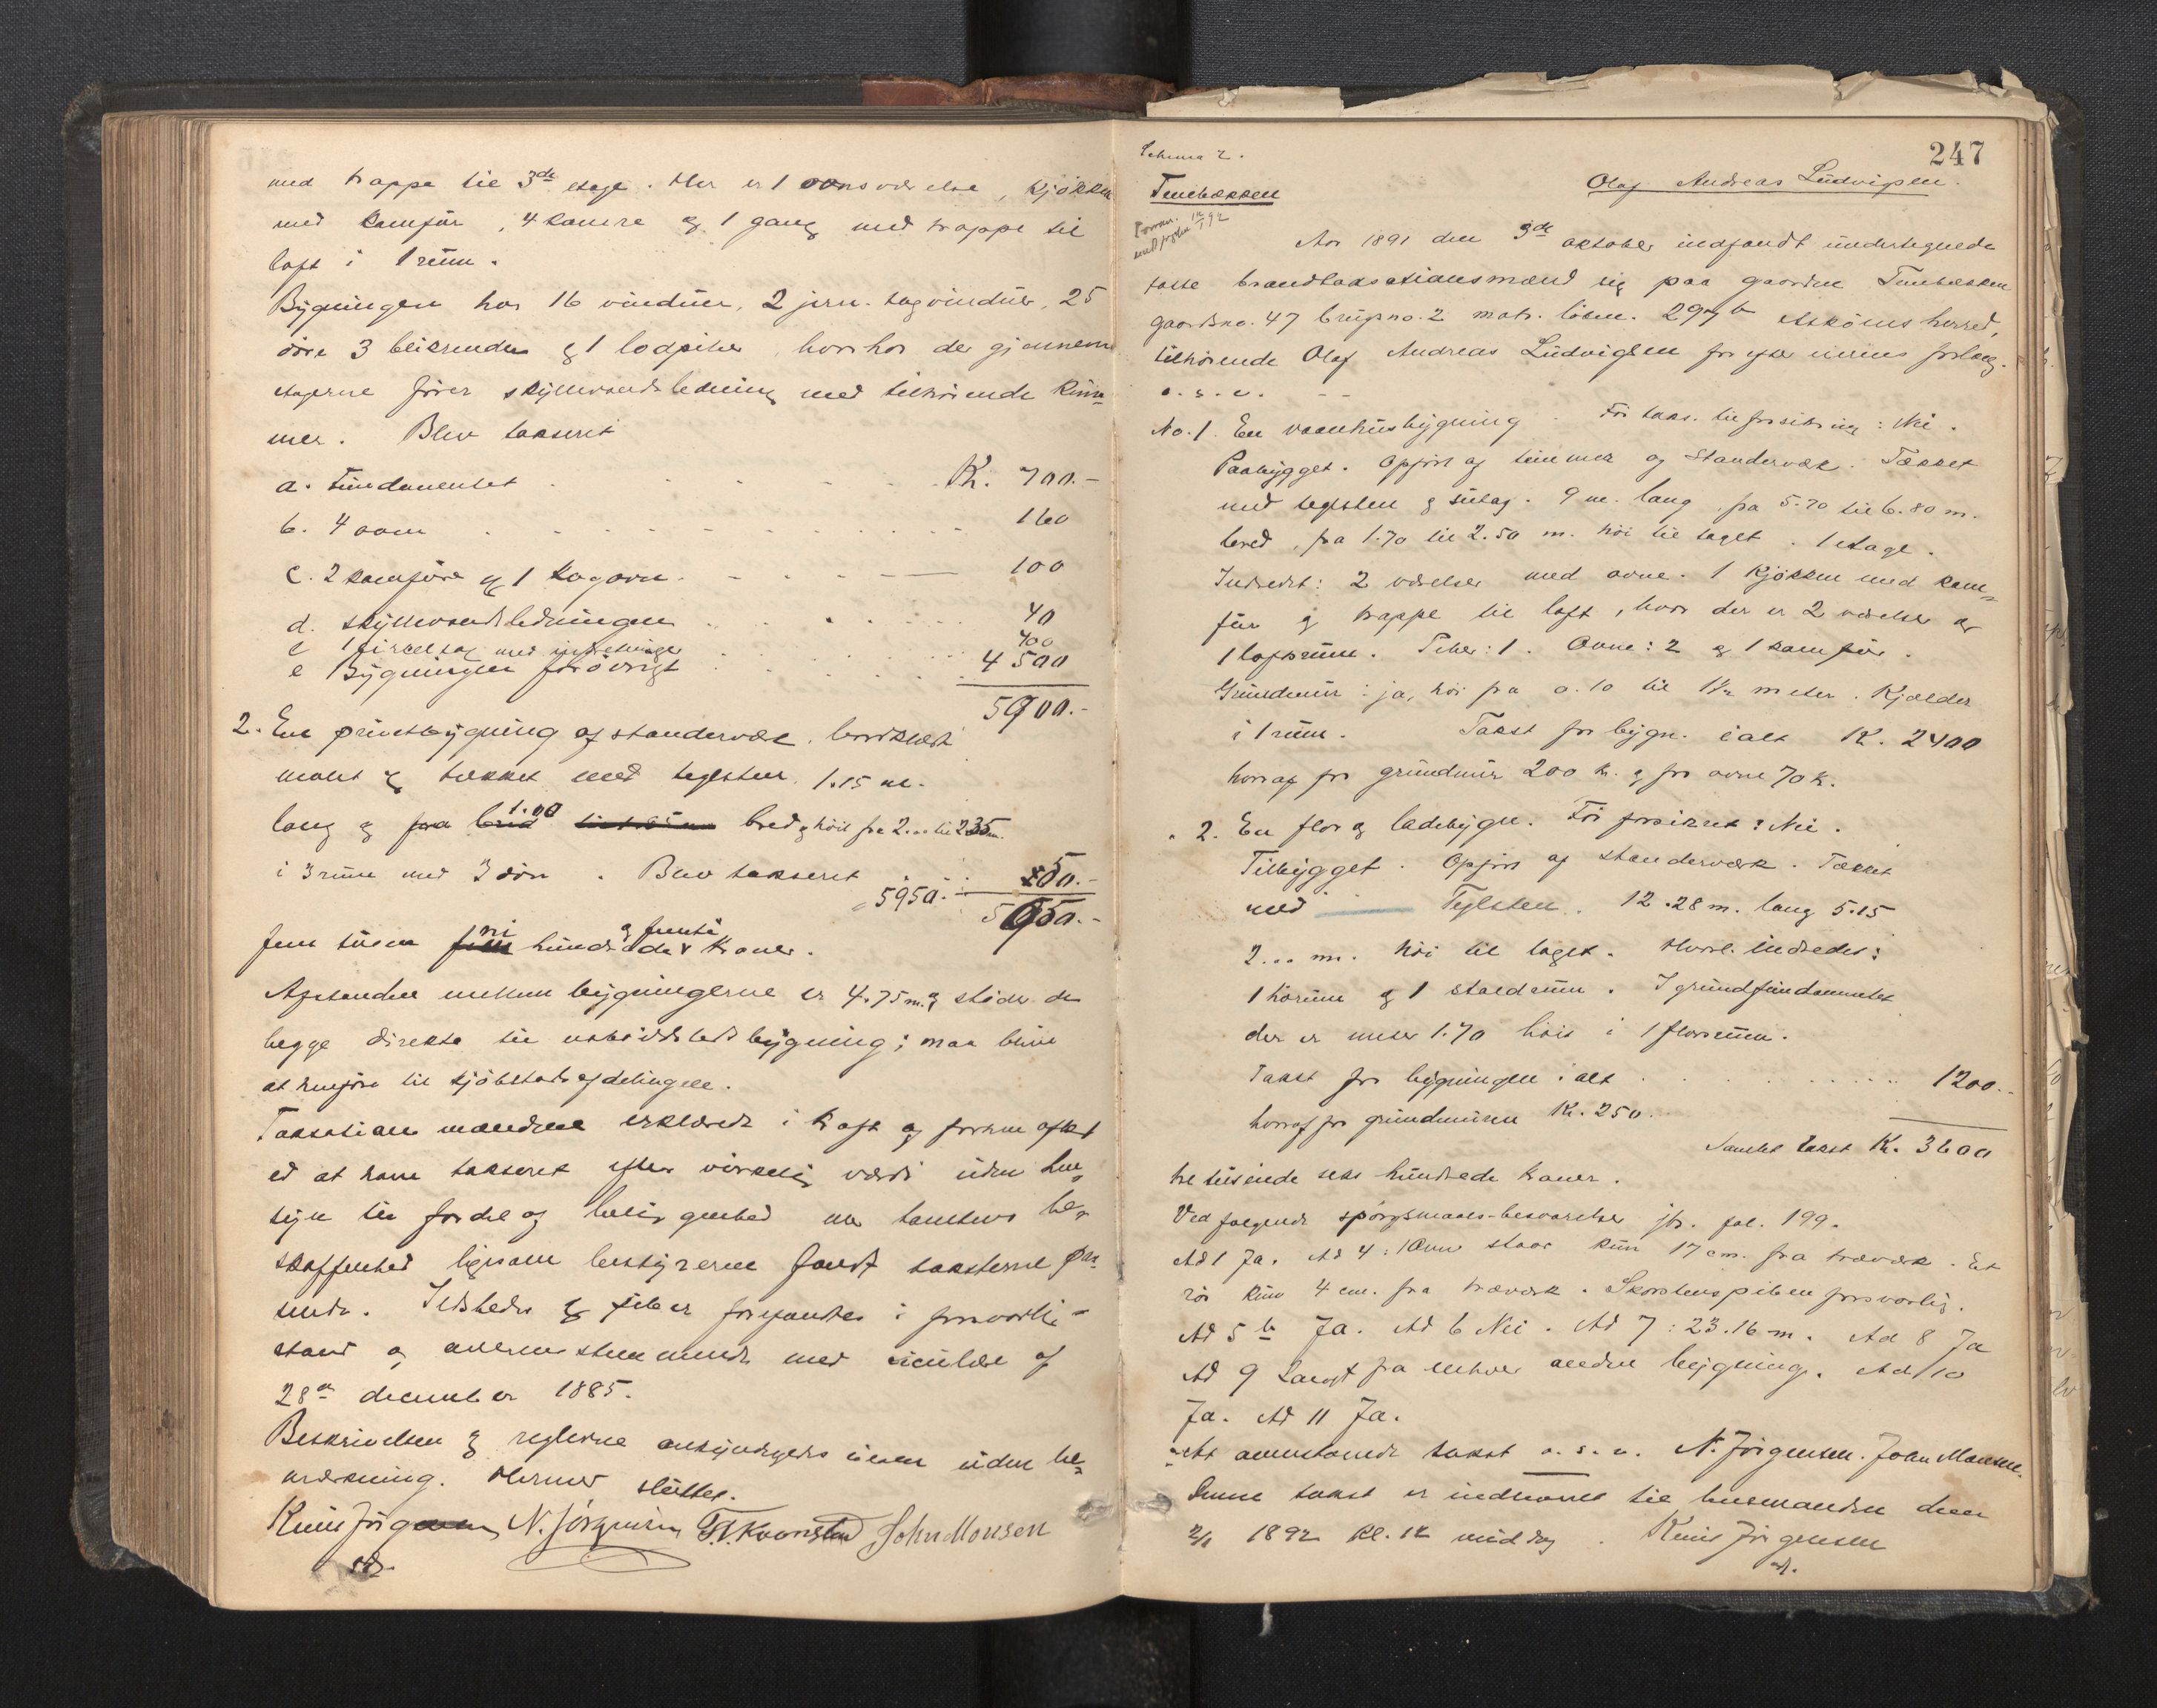 med trappe til 3de etage. Her er 1 værelse, kjøkken
med komfur, 4 kamre og 1 gang med trappe til
loft i 1 rum.
Bygningen har 16 vinduer, 2 jern-tagvinduer, 25
döre 3 og 1 lodpibe, der gjennem
etagerne förer skyllevandsledning med tilhörende kum-
mer. Blev takseret
a. Fundamentet K. 700.-
b. 4 ovne 160
c. 2 komfure og 1 kogovn 100
d. skyllevandsledningen 40
400
e Bygningen forövrigt 4500
5900.-
2. En privetbygning af standerværk, bordklædt
malet og tækket med teglsten 1.15 m.
lang og 1.00 bred og höi fra 2... til 2.35 m.
i 3 rum med 3 döre. Blev takseret 50.-
5950.- 5950.-
fem tusen ni hundrede og femti kroner.
Afstanden mellem bygningerne er 4.75 m. og stöder de
begge direkte til bygning; maa blive
at henföre til kjöbstadsafdelingen.
Taksationsmændene erklærede i kraft af forhen aflagt
ed at have takseret efter virkelig værdi uden hen-
syn til fordelag beliggenhed eller tomtens be-
skaffenhed ligesom bestyreren fandt taksterne pas-
sende. Ildsteder og piber forefandtes i forsvarlig
stand og overensstemmende med cirkulære af
28de december 1885.
Beskrivelsen og reglerne eieren uden be-
mærkning. Hermed sluttet.
Knud Jörgensen N. Jörgensen John Monsen
247
Schema 2.
Olaf Andreas Ludvigsen.
Tenebækken
Aar 1891 den 3de oktober indfandt undertegnede
faste brandtaksationsmænd sig paa gaarden Tenebækken
gaardsno. 47 brugsno. 2 matr. löbeno. 297b Asköens herred,
tilhörende Olaf Andreas Ludvigsen for efter eierens forlang.
o. s. v. - -
No. 1. En vaanhusbygning. För taks. til forsikring: Nei.
Paabygget. Opfört af tömmer og Standerværk. Tækket
med teglsten og sutag. 9 m. lang, fra 5.70 til 6.80 m.
bred, fra 1.70 til 2.50 m. höi til taget. 1 etage.
Indredet: 2 værelser med ovne. 1 kjökken med kom-
fur og trappe til loft, hvor der er 2 værelser og
1 loftsrum. Piber: 1. Ovne: 2 og 1 komfür.
Grundmur: ja, höi fra 0.10 til 1½ meter. Kjælder
i 1 rum. Takst for bygn. ialt K. 2400
hvoraf for grundmur 200 K. og for ovne 70 K.
" 2. En flor og ladebygn. För forsikret: Nei.
Tilbygget. Opfört af standerværk. Tækket
med Teglsten. 12.28 m. lang 5.15
2... m. höi til taget. Hvorl. indredet:
1 hörum og 1 staldrum. I grundfundamentet
der er under 1.70 höit i 1 florrum.
Takst for bygningen ialt 1200.-
hvoraf for grundmuren Kr. 250.
Samlet takst K. 3600
tre tusinde seks hundrede kroner.
Ved fölgende spörgsmaals-besvarelse jfr. fol. 199.
Ad 1 Ja. Ad 4: 1 Ovn staar kun 17 cm. fra træværk. Et
rör kun 4 cm. fra træværk. Skorstenspiben forsvarlig.
Ad 5 b Ja. Ad 6 Nei. Ad 7: 23.16 m. Ad 8 Ja
Ad 9 Langt fra enhver anden bygning. Ad 10
Ja. Ad 11 Ja.
At ovenstaaende takst o. s. v. N. Jörgensen. John Monsen.
Denne takst er indleveret til lensmanden den
2/1 1892 kl. 12 middag. Knud Jörgensen